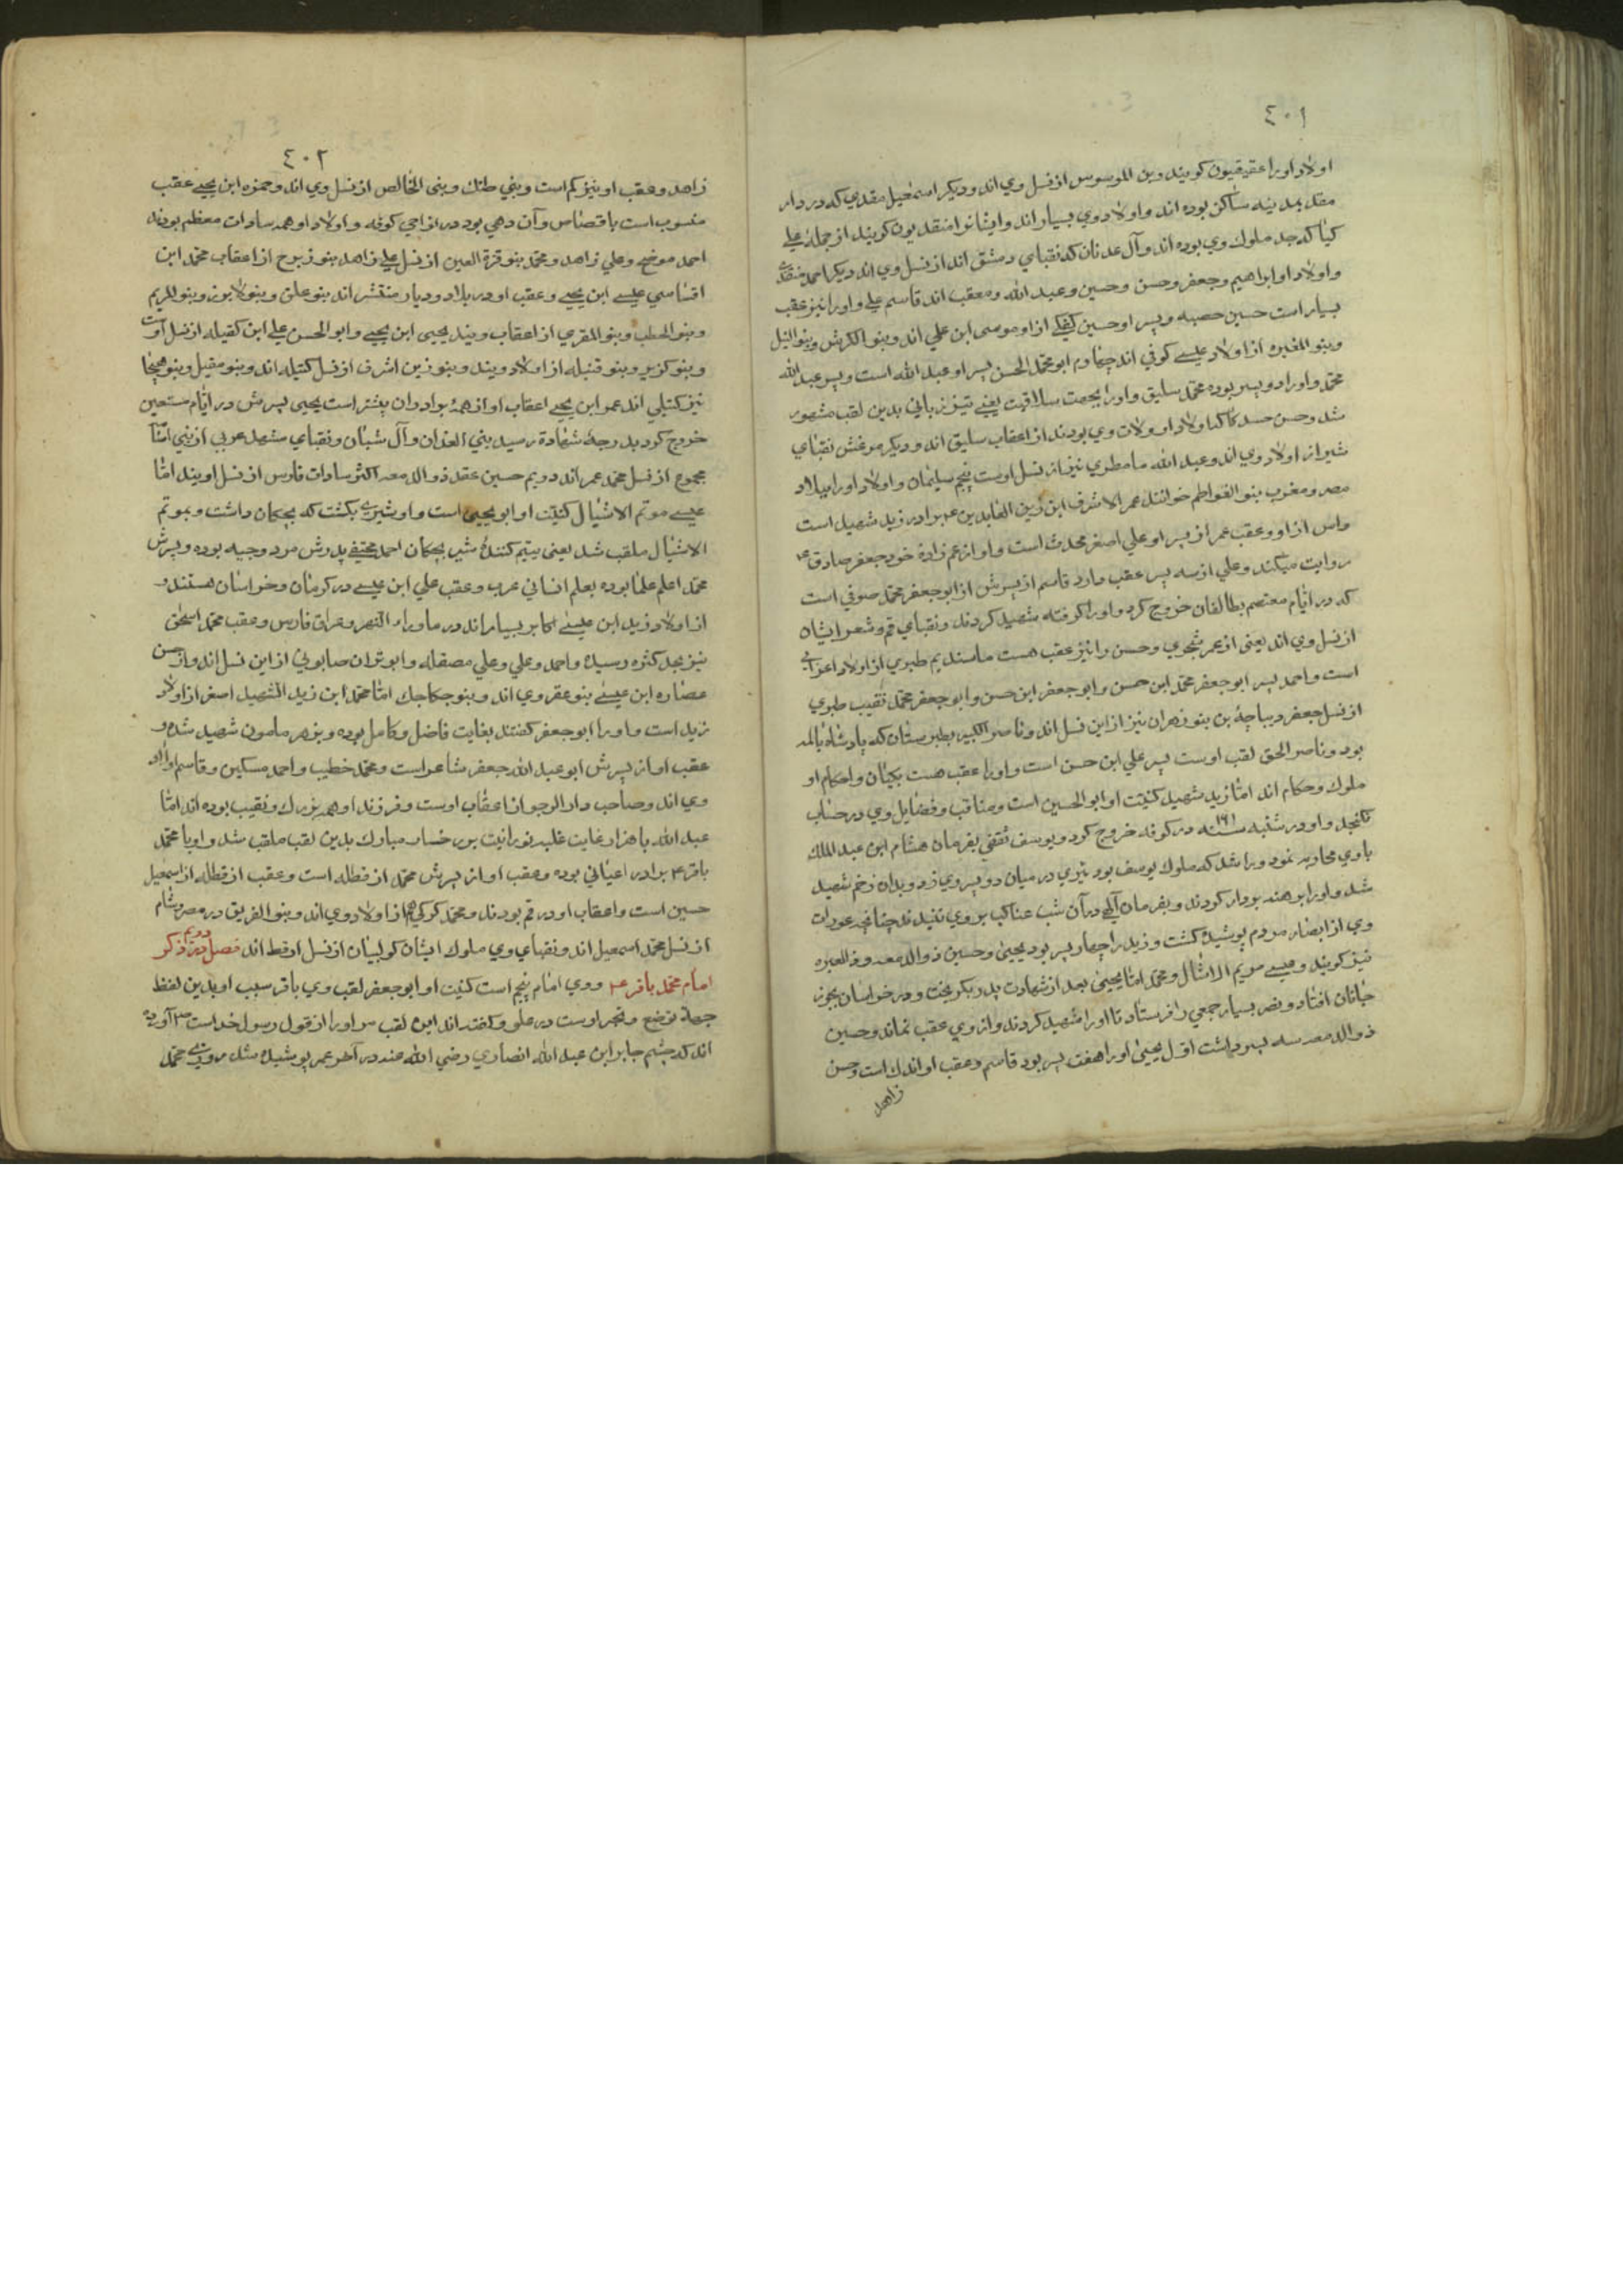 ٤٠١
اولاد او را عقیقیون کویند و بن الموسوس از نسل وي اند و دیکر اسمعیل منقدي که در دار
منقد بمدینه ساکن بوده اند و اولاد وي بسیار اند و ایشانرا منقدیون کویند از جمله علي
کیاکه جد ملوك وي بوده اند و آل عدنان که نقباي دمشق اند از نسل وي اند دیکر احمد منقدي
و اولاد او ابراهیم و جعفر و حسن و حسین و عبد الله و معقب اند قاسم علي و او را نیز عقب
بسیار است حسین حصبه و پسر او حسین کعکي از او موسی ابن علي اند و بنو الکرش و بنو النیل
و بنو المغیره از اولاد عیسے کوفي اند چهارم ابو محمد الحسن پسر او عبد الله است و پسر عبد الله
محمد و او را دو پسر بوده محمد سلیق و او را بجهت سلاقت یعنے تیز زباني بدین لقب مشهور
شد و حسن حسکه کا اولاد او ولات وي بودند از اعقاب سلیق اند و دیکر مرعش نقباي
شیراز از اولاد وي اند و عبد الله مامطري نیز از نسل اوست پنجم سلیمان و اولاد او را ببلاد
مصر و مغرب بنو الفواطم خوانند عمر الاشرف ابن زین العابدین ع برادر زید شهید است
و اس از او و عقب عمر از پسر او علي اصغر محدث است و او از عم زادهٔ خود جعفر صادق ع
روایت میکند و علي از سه پسر عقب دارد قاسم از پسرش از ابو جعفر محمد صوفي است
که در ایام معتصم بطالقان خروج کرد و او را کرفته شهید کردند و نقباي قم و شعر ایشان
از نسل وي اند یعنی از عمر شجري و حسن را نیز عقب هست مانند یم طبري از اولاد اعرابي
است و احمد پسر ابو جعفر محمد ابن حسن و ابو جعفر ابن حسن و ابو جعفر محمد نقیب طبري
از نسل جعفر دیباجه بن بنو زهران نیز از این نسل اند و ناصر الکبیر بطبرستان که پادشاه
بود و ناصر الحق لقب اوست پسر علي ابن حسن است و او را عقب هست بکیلان و احکام او
ملوك و حکام اند امّا زید شهید کنیت او ابو الحسین است و مناقب و فضایل وي در حساب
نکنجد و او در شنبه سنه ۱۲۱ در کوفه خروج کرد و یوسف ثقفي بفرمان هشام ابن عبد الملك
با وي محاربه نمود و راشد که ملوك یوسف بود تیري در میان دو پسر وي زد و بدان زخم شهید
شد و او را برهنه بر دار کردند و بفرمان آلهي در آن شب عناکب بر وي تنیدند چنانچه عورات
وي از ابصار مردم پوشیده کشت و زید را چهار پسر بود یحیی و حسین ذو الدمعه و ذو العبره
نیز کویند و عیسے موتم الاشبال و محمد امّا یحیی بعد از شهادت پدر بکریخت و در خراسان بجوز
جانان افتاد و نصر بسیار جمعي را فرستاد تا او را شهید کردند و از وي عقب نماند و حسین
ذو الدمعه سه پسر داشت اوّل یحیی او را هفت پسر بود قاسم و عقب او اندك است و حسن
زاهد
٤٠٢
زاهد و عقب او نیز کم است و بني طنك و بني الخالص از نسل وي اند و حمزه ابن یحیے عقب
منسوب است باقصاص و آن دهي بود در نواحي کوفه و اولاد او همه سادات معظم بودند
احمد موضح و علي زاهد و محمد بنو قرة العین از نسل علي زاهد بنو زبرج از اعقاب محمد ابن
اقساسي عیسے ابن یحیے و عقب او در بلاد و دیار منتشر اند بنو علق و بنو لابون و بنو المریم
و بنو الخطب و بنو المقري از اعقاب ویند یحیی ابن یحیے و ابو الحسن علي ابن کقیله از نسل اوست
و بنو کزیر و بنو قتیله از اولاد ویند و بنو زین اشرف از نسل کتیله اند و بنو مقبل و بنو هیجا
نیز کتیلي اند عمر ابن یحیے اعقاب او از همهٔ برادران بیشتر است یحیی پسرش در ایّام مستعین
خروج کرد بدرجهٔ شهادة رسید بني الغدان و آل شبان و نقباي مشهد غربي از بني امّا
مجموع از نسل محمد عمر اند دویم حسین عقد ذو الدمعه اکثر سادات فارس از نسل اویند امّا
عیسے موتم الاشبال کنیت او ابو یحیی است و او شیرے بکشت که بچکان داشت و بموتم
الاشبال ملقب شد یعنی یتیم کنندهٔ شیر بچکان احمد مختفے پدرش مرد وجیه بوده و پسرش
محمد اعلم علما بوده بعلم انساني عرب و عقب علي ابن عیسے در کرمان و خراسان هستند و
از اولاد زید ابن عیسے اکابر بسیار اند در ماوراء النهر و عراق فارس و عقب محمد اسحق
نیز بحد کثره رسیده و احمد و علي و علي مصقله و ابو تران صابوني از این نسل اند و از حسن
عضاره ابن عیسے بنو عقروي اند و بنو جکاجك امّا محمد ابن زید الشهید اصغر از اولاد
زید است و او را ابو جعفر کفتند بغایت فاضل و کامل بوده و بزهر مامون شهید شده و
عقب او از پسرش ابو عبد الله جعفر شاعر است و محمد خطیب و احمد مسکین و قاسم اولاد
وي اند و صاحب دار الوجو از اعقاب اوست و فرزند او همه بزرك و نقیب بوده اند امّا
عبد الله باهر از غایت غلبه نورانیت بر رخسار مبارك بدین لقب ملقب شد و او با محمد
باقر ع برادر اعیاني بوده و عقب او از پسرش محمد ارقطله است و عقب ارقطله از اسمعیل
حسین است و اعقاب او در قم بودند و محمد کرکي هم از اولاد وي اند و بنو الغریق در مصر و شام
از نسل محمد اسمعیل اند و نقباي وي ملوك ایشان کوکبیان از نسل ارقط اند فصل دویم در ذکر
امام محمد باقر ع و وي امام پنجم است کنیت او ابو جعفر لقب وي باقر سبب او بدین لفظ
جهة توضع و تبحر اوست در علم و کفته اند این لقب مر او را از قول رسول خداست ص آورده
اند که چشم جابر ابن عبد الله انصاري رضي الله عنه در آخر عمر پوشیده شد روزے محمد